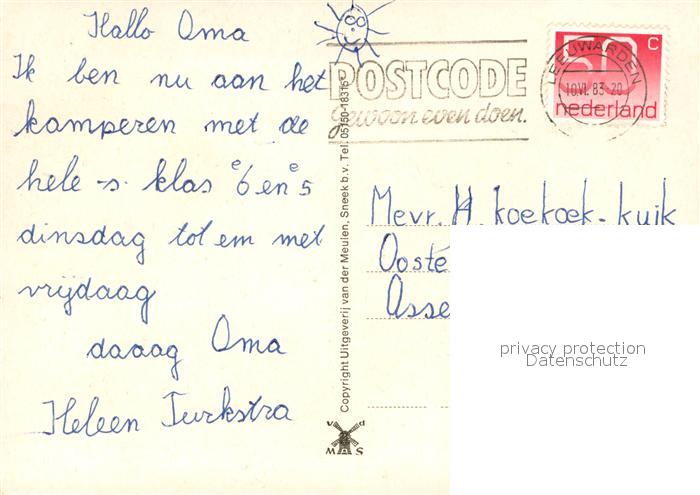 Hallo Oma
Ik ben nu aan het
kamperen met de
hele -s- klas 6e en 5e
dinsdag tot em met
vrijdaag
daaag Oma
Heleen Turkstra
POSTCODE
gewoon even doen.
LEEUWARDEN
10.VI. 83 20
50 C
nederland
Copyright Uitgeverij van der Meulen, Sneek b.v. Tel. 05150-18315
v d
MAS
Mevr. H. koekoek-kuik
Ooste
Asse
privacy protection
Datenschutz